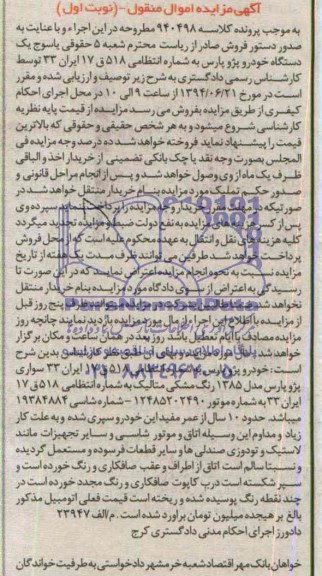 آگهی مزایده اموال منقول - (نوبت اول)
به موجب پرونده کلاسه ۹۴۰۴۹۸ مطروحه در این اجراء و با عنایت به
صدور دستور فروش صادر از ریاست محترم شعبه ۵ حقوقی یاسوج یک
دستگاه خودرو پژو پارس به شماره انتظامی ۵۱۸ق۱۷ ایران ۳۳ توسط
کارشناس رسمی دادگستری به شرح زیر توصیف و ارزیابی شده و مقرر
است در مورخ ۱۳۹۴/۰۶/۲۱ از ساعت ۹ الی ۱۰ در محل اجرای احکام
کیفری از طریق مزایده بفروش می رسد مزایده از قیمت پایه نظریه
کارشناسی شروع میشود و به هر شخص حقیقی و حقوقی که بالاترین
قیمت را پیشنهاد نماید فروخته خواهد شد ده درصد وجه مزایده فی
المجلس بصورت وجه نقد یا چک بانکی تضمینی از خریدار اخذ و الباقی
ظرف یک ماه از وی وصول خواهد شد و پس از انجام مراحل قانونی و
صدور حکم تملیک مورد مزایده بنام خریدار منتقل خواهد شد در
صورتیکه در خریدار وجه مزایده را پرداخت ننماید سپرده وی
پس از کسر هزینه های مزایده به نفع دولت ضبط و مزایده تجدید میگردد
کلیه هزینه های نقل و انتقال به عهده محکوم علیه است که از محل فروش
پرداخت خواهد شد طرفین می توانند ظرف مدت یک هفته از تاریخ
مزایده نسبت به نحوه انجام مزایده اعتراض نمایند که در این صورت تا
رسیدگی به اعتراض از سوی دادگاه مورد مزایده بنام خریدار منتقل
نخواهد شد ضمنا طالبین شرکت در مزایده ظرف پنج روز قبل
از مزایده با اطلاع این اجرا از مال مورد مزایده بازدید نمایند چنانچه روز
مزایده مصادف با ایام تعطیل باشد روز بعد در همان ساعت و مکان برگزار
خواهد شد بدین شرح
است: خودرو پژو پارس ۵۱۸ق۱۷ ایران ۳۳ سواری
پژو پارس مدل ۱۳۸۵ رنگ مشکی متالیک به شماره انتظامی ۵۱۸ق۱۷
ایران ۳۳ به شماره موتور ۱۲۴۸۵۲۰۲۴۹۰ - شماره شاسی ۱۹۳۸۴۸۸۴
میباشد. حدود ۱۰ سال از عمر مفید این خودرو سپری شده و به علت کار
زیاد و مداوم این وسیله اتاق و موتور شاسی و سایر تجهیزات مانند
لاستیک و تودوزی صندلی ها و سایر قطعات فرسوده و مستعمل گردیده
و نسبتا سالم است اتاق از اطراف و عقب صافکاری و رنگ خورده است و
سپر شکسته است درب کاپوت صافکاری و رنگ مجدد خورده است در
چند نقطه رنگ پوسیده شده و ریخته است قیمت فعلی اتومبیل مذکور
بالغ بر هیجده میلیون تومان برآورد شده است. م/الف ۲۳۹۴۷
دادورز اجرای احکام مدنی دادگستری کرج
خواهان بانک مهر اقتصاد شعبه خرمشهر دادخواستی به طرفیت خواندگان